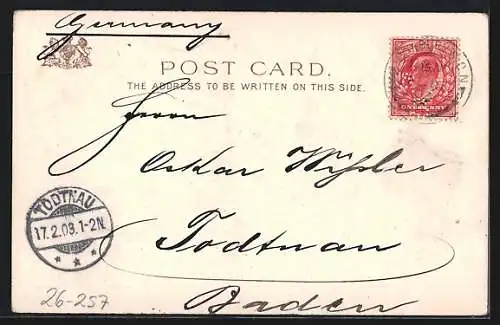 Germany
POST CARD.
THE ADDRESS TO BE WRITTEN ON THIS SIDE.
ONE PENNY
Herrn
Oskar Wißler
Todtnau
Baden
TODTNAU
17.2.03.1-2N.
26-257